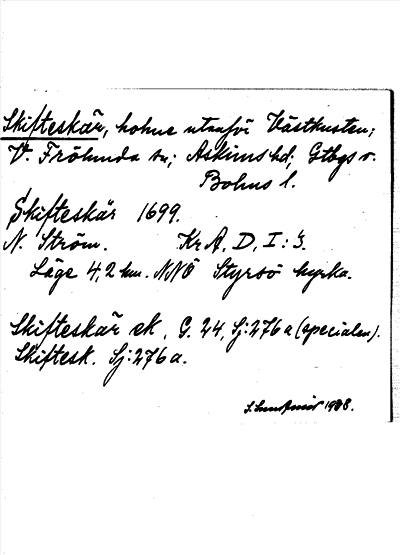 Skifteskär, holme utanför Västkusten;
V. Frölunda sn; Askims hd; Gtbgs o.
Bohus l.
Skifteskär 1699.
N. Ström. Kr A, D, I: 3.
Läge 4,2 km. NNÖ Styrsö kyrka.
Skifteskär ek. G. 24, Sj: 276 a (specialen).
Skiftesk. Sj: 276 a.
1938.